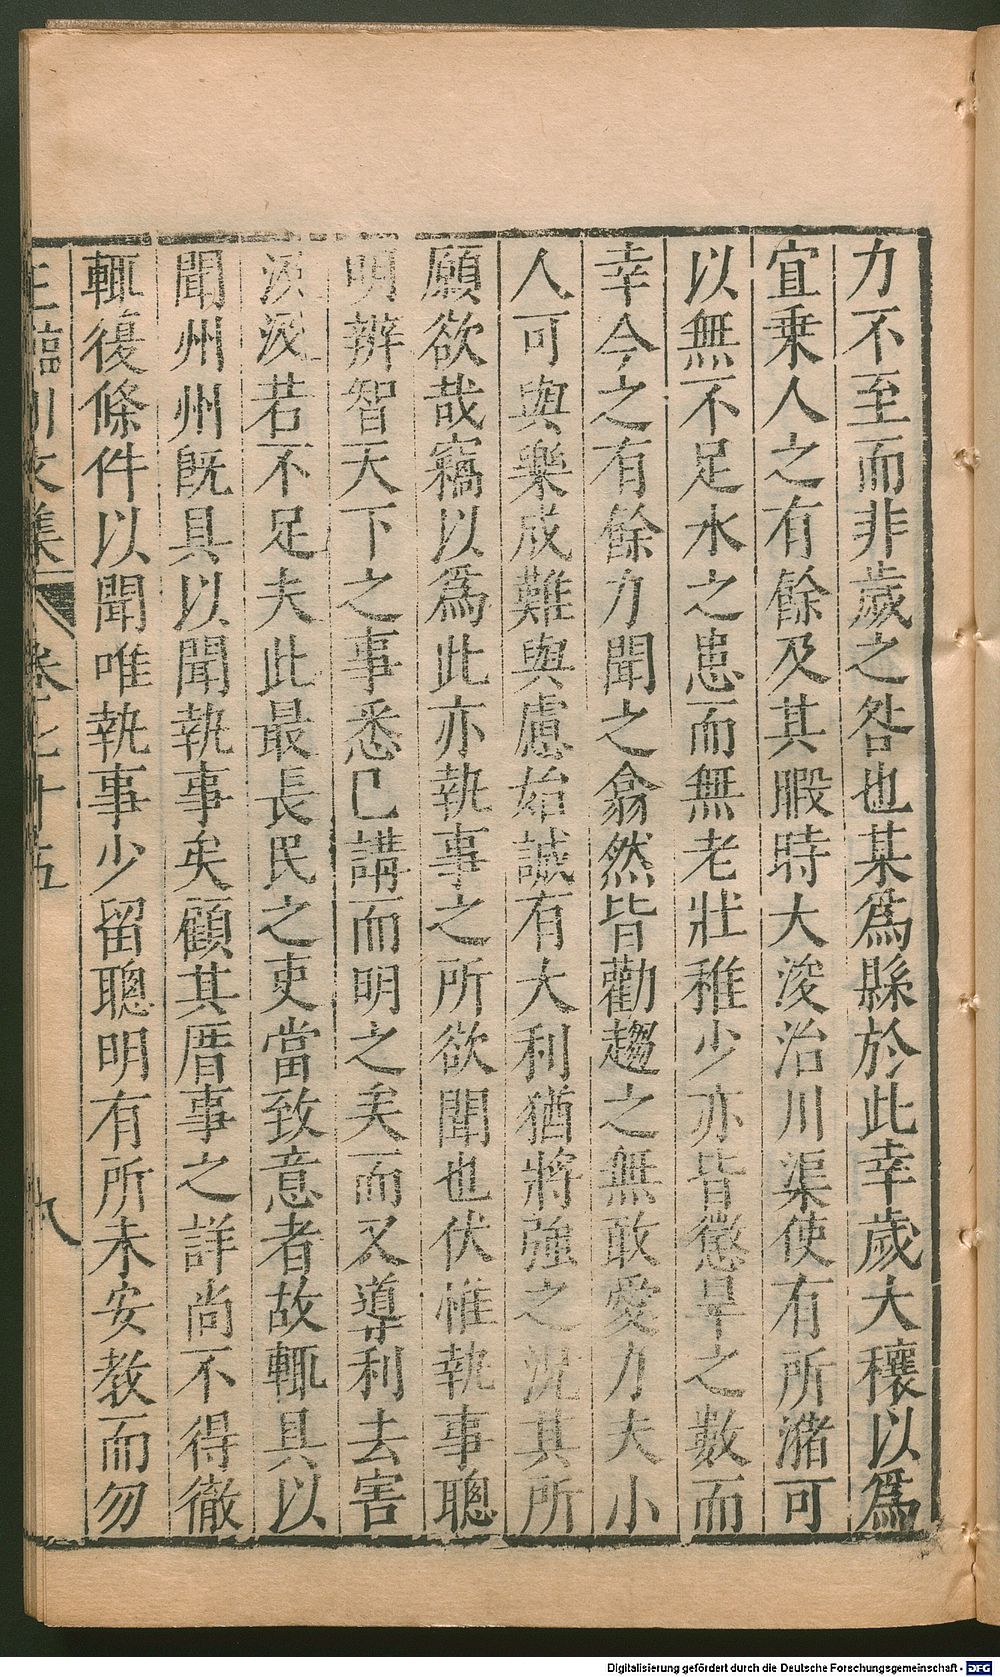 力不至而非歲之咎也某爲縣於此幸歲大穰以爲
宜乗人之有餘及其暇時大浚治川渠使有所潴可
以無不足水之患而無老壯稚少亦皆懲旱之數而
幸今之有餘力聞之翕然皆勸趨之無敢愛力夫小
人可與樂成難與慮始誠有大利猶將強之況其所
願欲哉竊以爲此亦執事之所欲聞也伏惟執事聰
明辨智天下之事悉已講而明之矣而又導利去害
汲汲若不足夫此最長民之吏當致意者故輒具以
聞州州旣具以聞執事矣顧其厝事之詳尚不得徹
輒復條件以聞唯執事少留聰明有所未安教而勿
王臨川文集 卷七十五 九
Digitalisierung gefördert durch die Deutsche Forschungsgemeinschaft - DFG